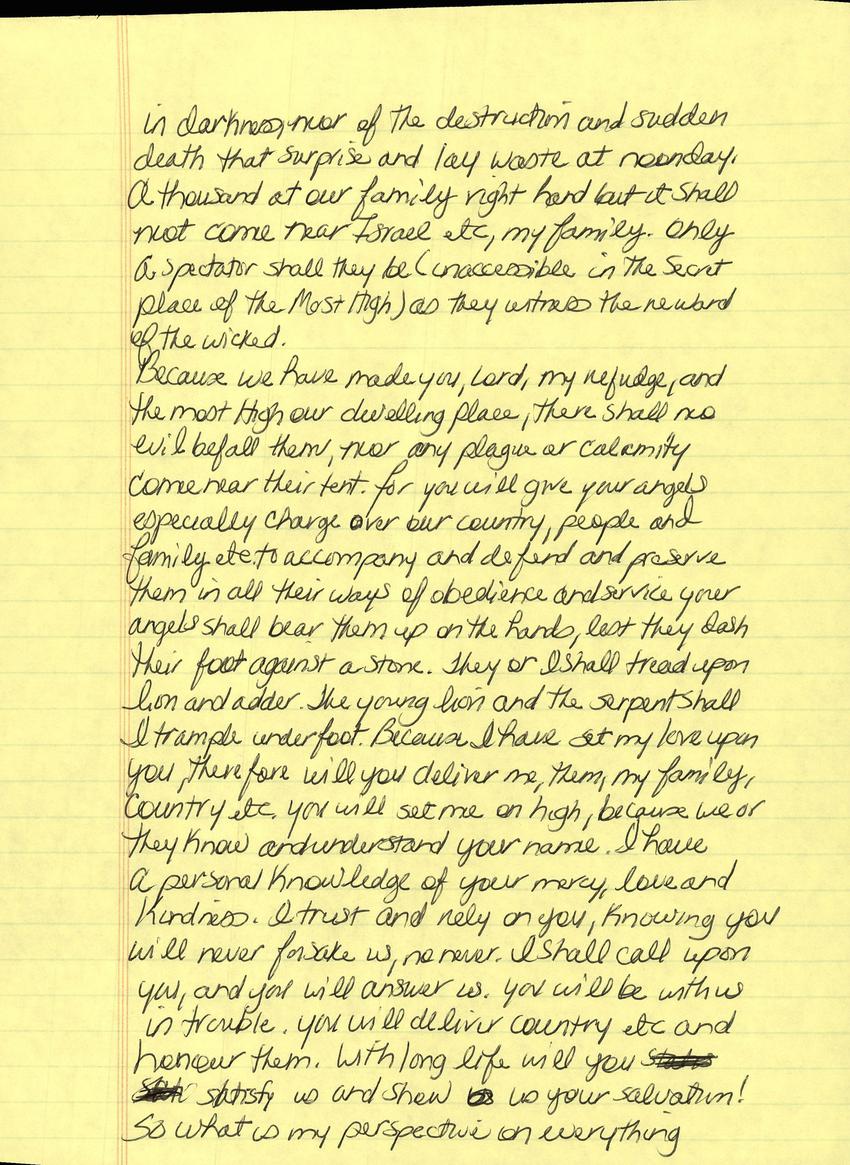 in darkness, nor of the destruction and sudden
death that surprise and lay waste at noonday.
A thousand at our family right hand but it shall
not come near Israel etc, my family. Only
A spectator shall they be (unaccessible in the Secret
place of the Most High) as they witness the reward
of the wicked.
Because we have made you, Lord, my refudge, and
the most High our dwelling place, there shall no
evil befall them, nor any plague or calamity
come near their tent. for you will give your angels
especially charge over our country, people and
family etc. to accompany and defend and preserve
them in all their ways of obedience and service your
angels shall bear them up on the hands, lest they dash
their foot against a stone. They or I shall tread upon
lion and adder. The young lion and the serpent shall
I trample underfoot. Because I have set my love upon
you, therefore will you deliver me, them, my family,
Country etc. you will set me on high, because we or
they know and understand your name. I have
a personal knowledge of your mercy, love and
Kindness. I trust and rely on you, knowing you
will never forsake us, no never. I shall call upon
you, and you will answer us. you will be with us
in trouble. you will deliver country etc and
honour them. With long life will you
satisfy us and show us your salvation!
So what is my perspective on everything